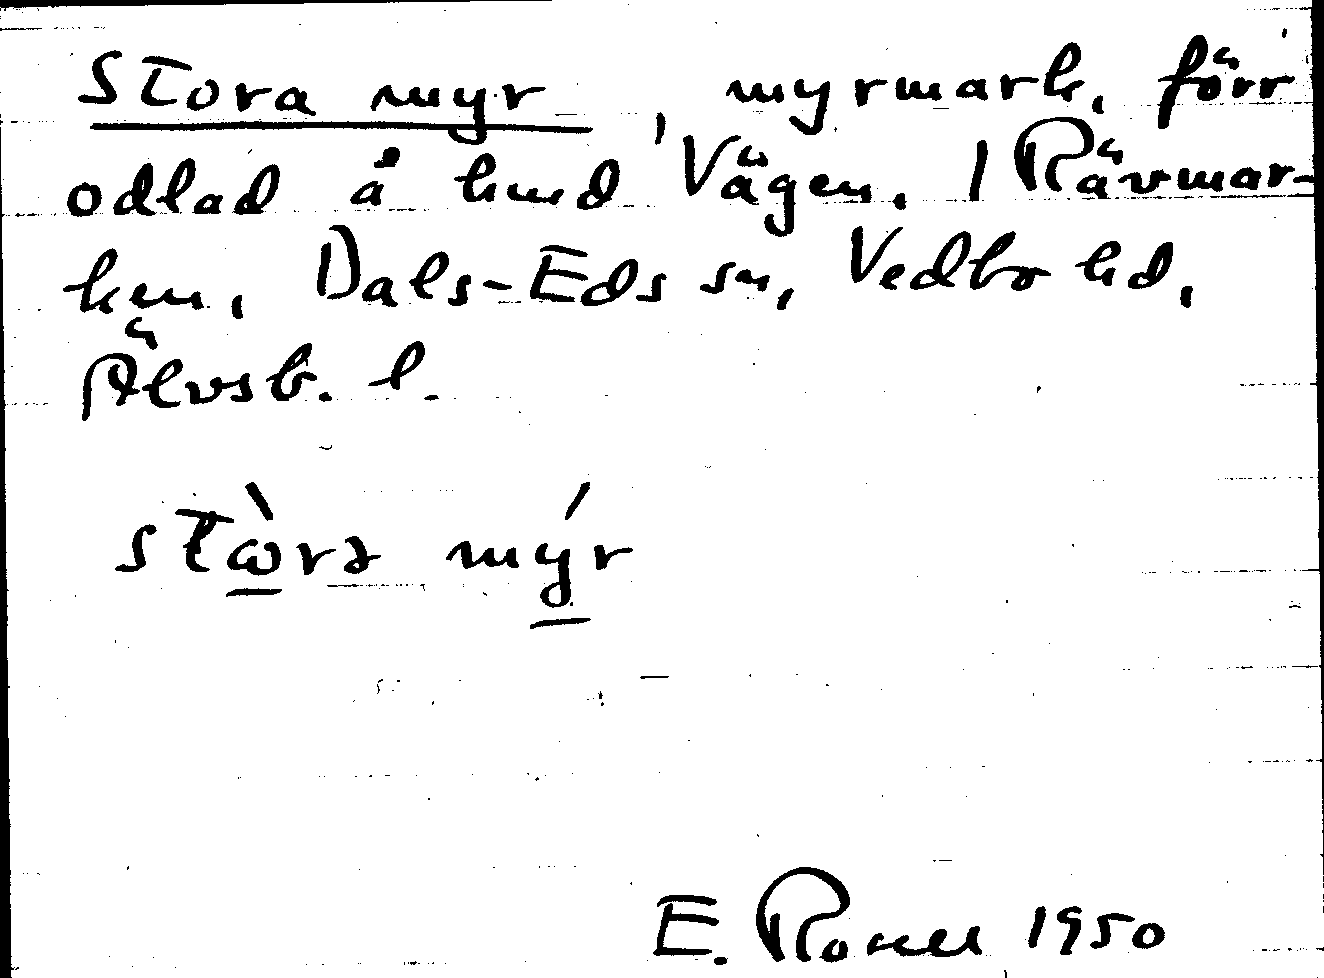 Stora myr, myrmark, förr
odlad å kund Vägen. I Rävmar-
ken, Dals-Eds sn, Vedbo hd,
Älvsb. l.
stὼrə mýr
E. Rosell 1950